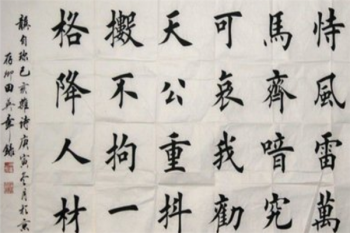 恃風雷萬
馬齊喑究
可哀我勸
天公重抖
擻不拘一
格降人材
龔自珍己亥雜詩庚寅冬月於京
存卿田英章